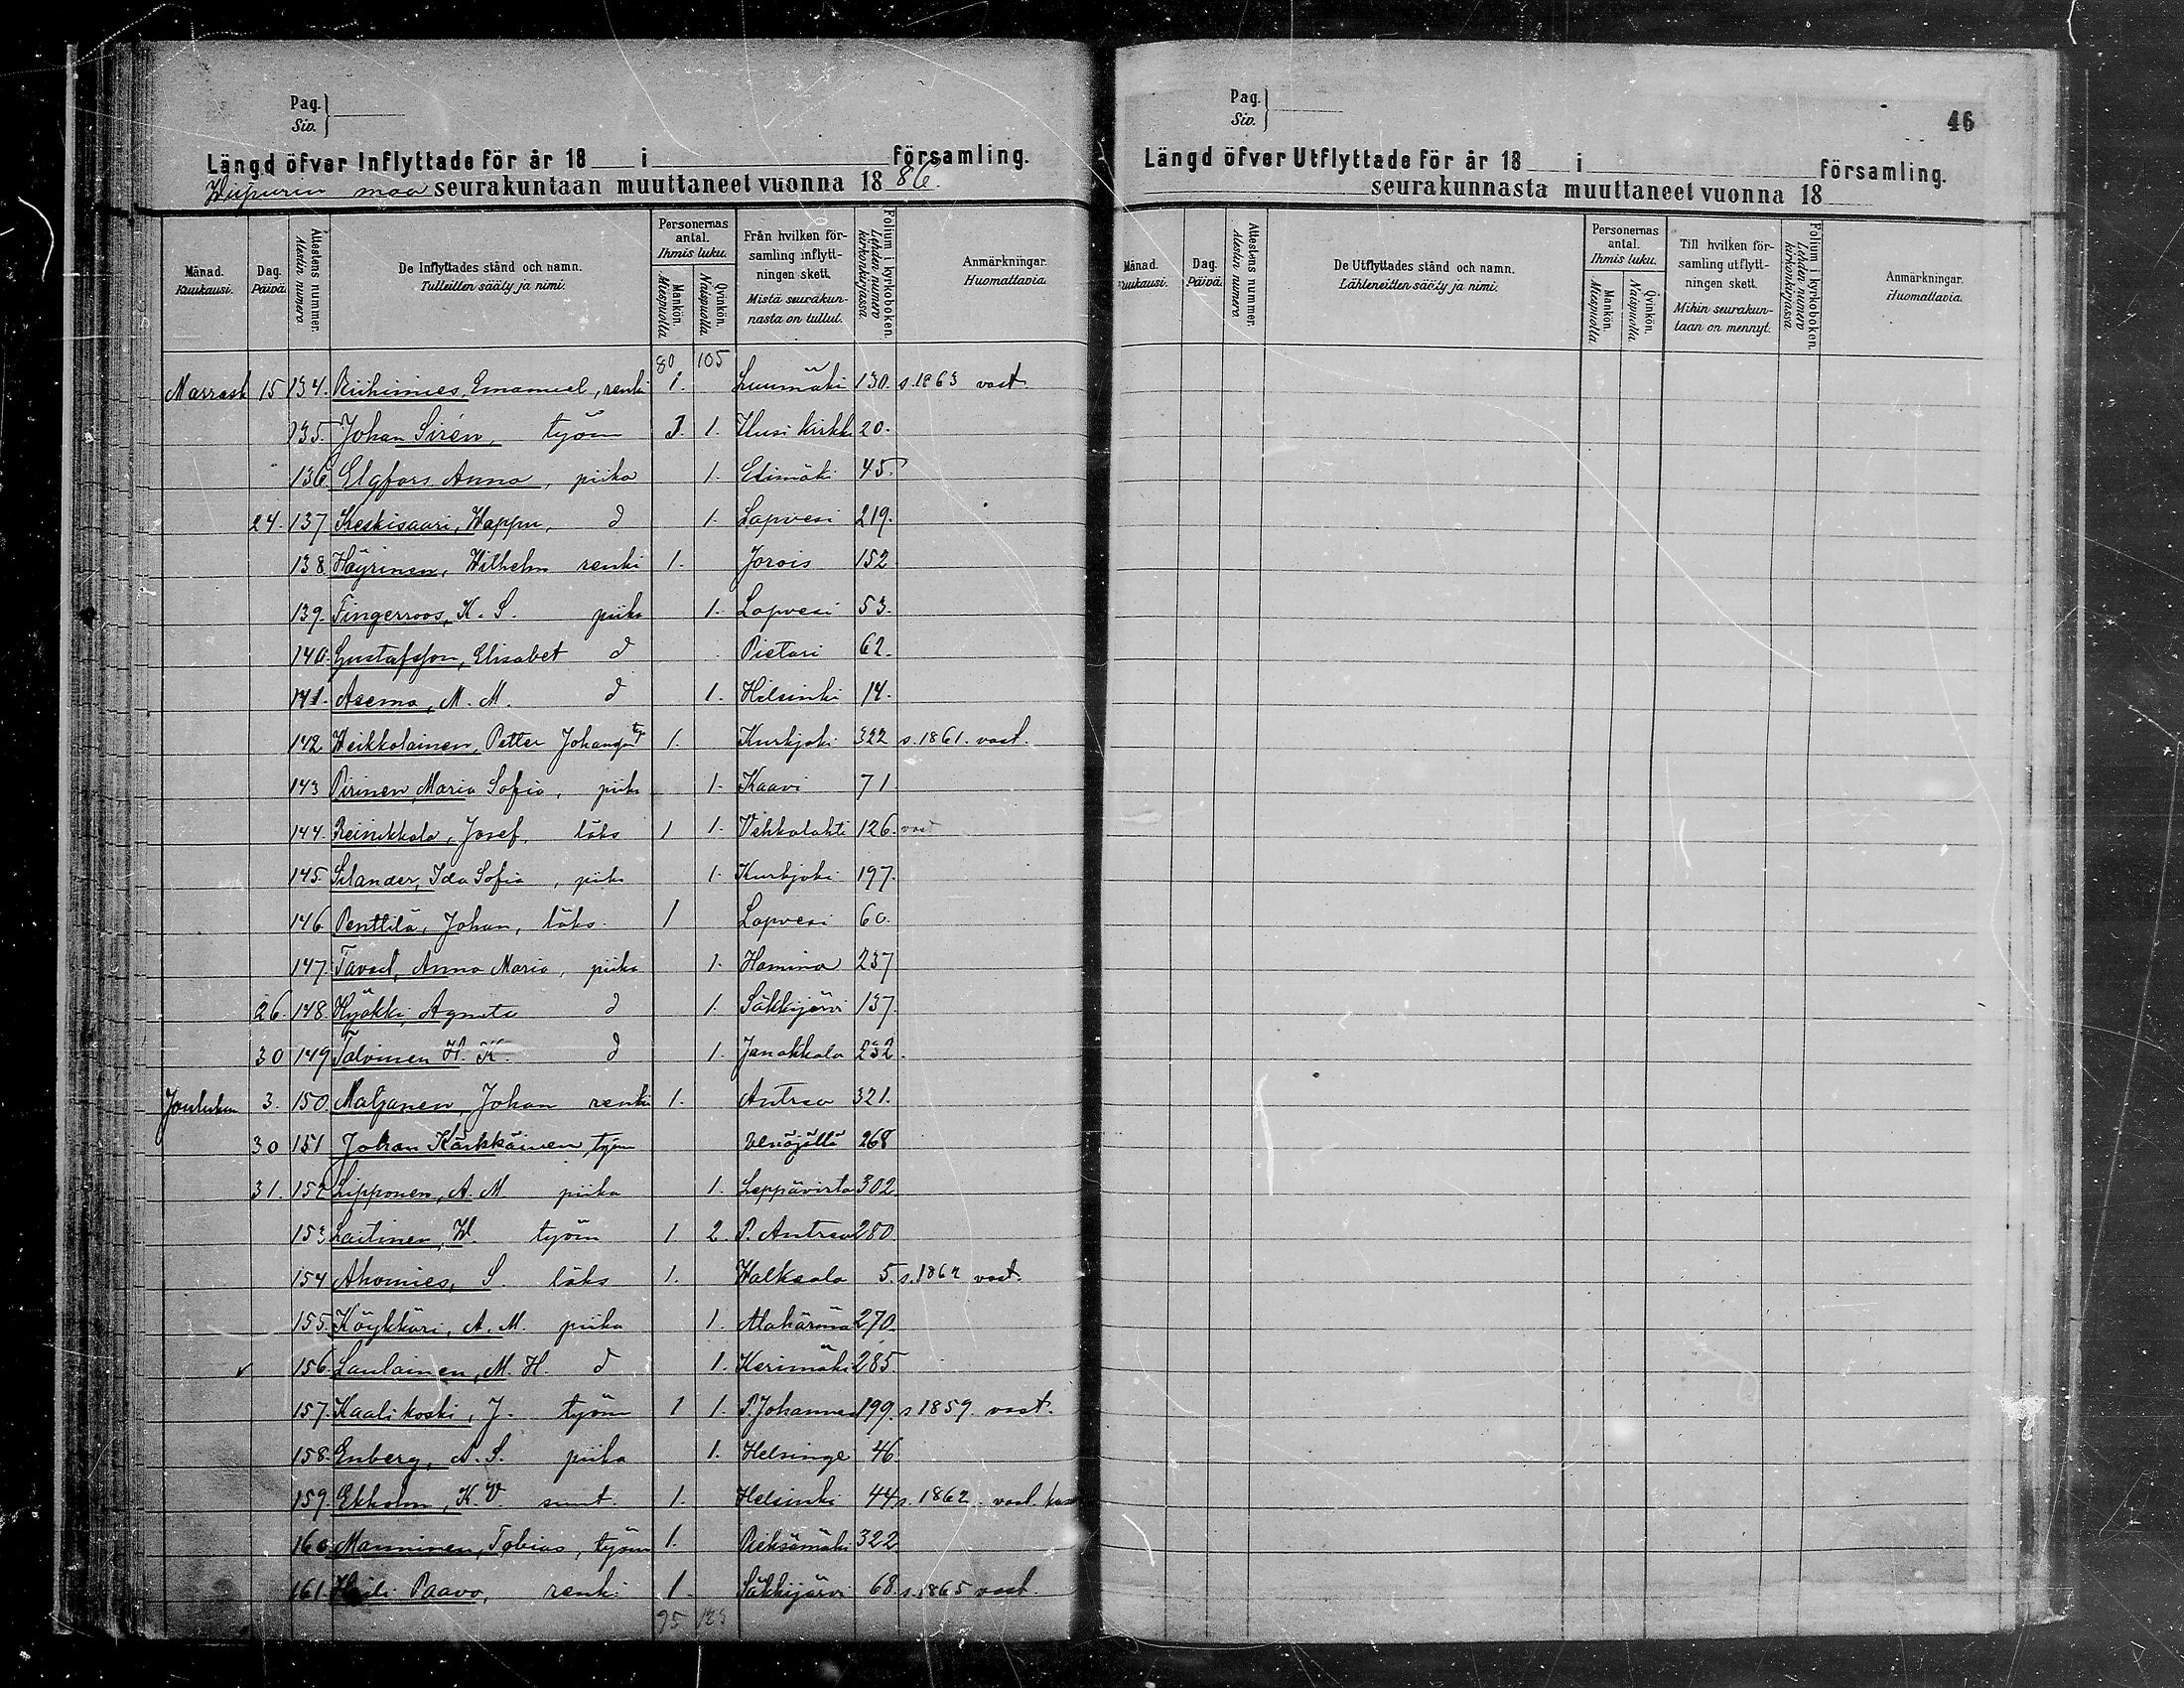 Pag.
Siv.
Längd öfver Inflyttade för år 18 i församling.
Wiipurin maa seurakuntaan muuttaneet vuonna 1886.
Månad. Kuukausi.
Dag. Päivä.
Attestens nummer. Atestin numero
De Inflyttades stånd och namn. Tulleitten sääty ja nimi.
Personernas antal. Ihmis luku.
Mankön. Miespuolia
Qvinkön. Naispuolia
Från hvilken församling inflyttningen skett. Mistä seurakunnasta on tullut.
Folium i kyrkoboken. Lehden numero kirkonkirjassa.
Anmärkningar. Huomattavia
80 105
Marrask 15 134. Riihimies, Emanuel, renki 1. Luumäki 130. s. 1863 vast.
135. Johan Sirén, työm 3. 1. Uusi kirkko 20.
136. Elgfors Anna, piika 1. Elimäki 45.
24. 137 Keskisaari, Wappu, d 1. Lapvesi 219.
138 Häyrinen, Wilhelm renki 1. Jorois 152
139. Fingerroos, K. S. piika 1. Lapvesi 53.
140. Gustafsson, Elisabet d Pietari 62.
141. Asema, M. M. d 1. Helsinki 14.
142. Weikkolainen, Petter Johan 1. Kurkjoki 322 s. 1861. vast.
143 Pirinen, Maria Sofia, piika 1. Kaavi 71
144. Reinikkala, Josef, läks 1 1. Vehkalahti 126.
145. Silander, Ida Sofia, piika 1. Kurkjoki 197.
146 Penttilä, Johan, läks. 1 Lapvesi 60.
147. Tavast, Anna Maria, piika 1. Hamina 237
26. 148. Hyökki, Agneta d 1. Säkkijärvi 137.
30 149 Talvinen H. K. d 1. Janakkala 232.
Jouluku 3. 150. Maljanen, Johan renki 1. Antrea 321.
30 151 Johan Kärkkäinen, työm Venäjältä 268
31. 152 Lipponen, A. M. piika 1. Leppävirta 302.
153 Laitinen, W. työm 1 2. P. Antrea 280.
154 Ahomies, S. läks 1. Walkeala 5. s. 1862 vast.
155. Köykkäri, A. M. piika 1. Alahärmä 270.
156. Laulainen, M. H. d 1. Kerimäki 285.
157. Kaalikoski, J. työm 1 1. P. Johannes 199. s 1859. vast.
158. Enberg, A. S. piika 1. Helsinge 46.
159. Ekholm, K. V sunt. 1. Helsinki 44 s. 1862. vast.
160. Manninen, Tobias, työm 1. Pieksämäki 322.
161. Paavo, renki 1. Säkkijärvi 68. s. 1865 vast.
95 123
Pag.
Siv.
46
Längd öfver Utflyttade för år 18 i församling.
seurakunnasta muuttaneet vuonna 18
Månad. Kuukausi.
Dag. Päivä.
Attestens nummer. Atestin numero
De Utflyttades stånd och namn. Lähteneitten sääty ja nimi.
Personernas antal. Ihmis luku.
Mankön. Miespuolia
Qvinkön. Naispuolia
Till hvilken församling utflyttningen skett. Mihin seurakuntaan on mennyt.
Folium i kyrkoboken. Lehden numero kirkonkirjassa
Anmärkningar. Huomattavia.